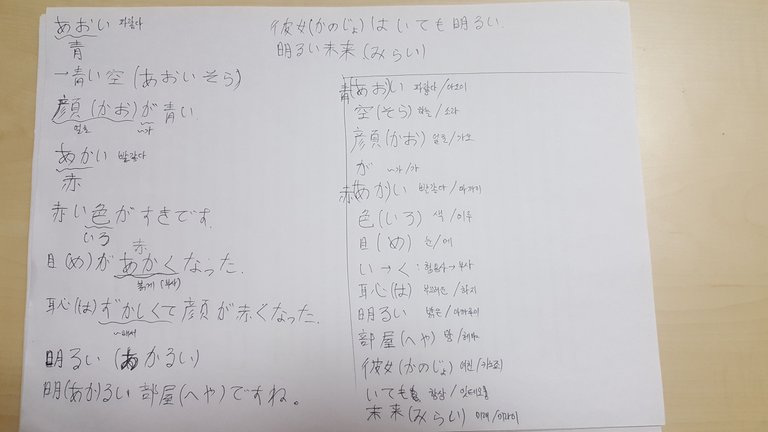 あおい 파랗다
青
→青い空 (あおいそら)
顔 (かお)が青い.
얼굴 ~가
あかい 빨갛다
赤
赤い色がすきです.
いろ
赤
目(め)が あかくなった.
붉게 (부사)
恥(は)ずかしくて顔が赤くなった.
~해서
明るい (あかるい)
明(あか)るい部屋(へや)ですね。
彼女(かのじょ)はいても明るい.
明るい未来(みらい)
青(あお)い 파랗다/아오이
空(そら) 하늘/소라
顔(かお) 얼굴/가오
が ~가/가
赤(あか)い 빨갛다/아까이
色(いろ) 색/이로
目(め) 눈/메
い→く : 형용사→부사
恥(は)
明るい 밝은/아까루이
部屋(へや) 방/헤야
彼女(かのじょ)
いても
未来(みらい) 미래/미라이